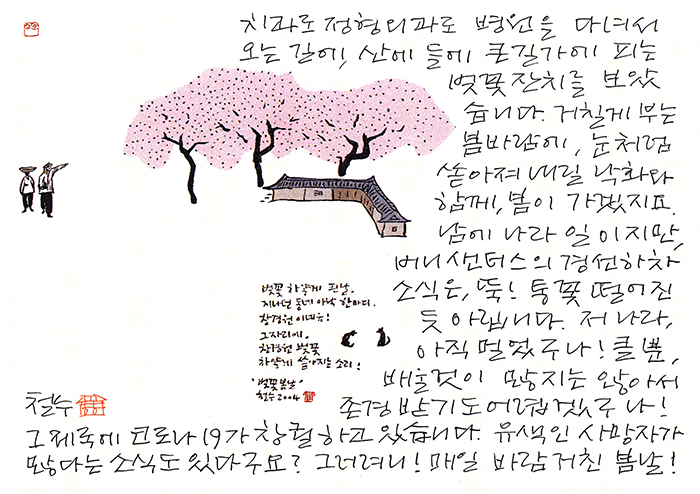 치과로 정형외과로 병원을 다녀서
오는 길에, 산에 들에 큰길가에 피는
벚꽃잔치를 보았
습니다. 거칠게 부는
봄바람에, 눈처럼
쏟아져 내릴 낙화와
함께, 봄이 가겠지요.
남에 나라 일이지만,
버니 샌더스의 경선하차
소식은, 뚝! 통꽃 떨어진
듯 아립니다. 저 나라,
아직 멀었구나! 클 뿐,
배울것이 많지는 않아서
존경 받기도 어렵겠구나!
그 체육에 코로나19가 창궐하고 있습니다. 유색인 사망자가
많다는 소식도 있다구요? 그러려니! 매일 바람 거친 봄날!
벚꽃 하얗게 핀 날.
지나던 동네 아낙 한마디.
창경원이네유!
그 자리에,
창경원 벚꽃
하얗게 쏟아지는 소리!
'벚꽃 봄날'
철수 2004
철수